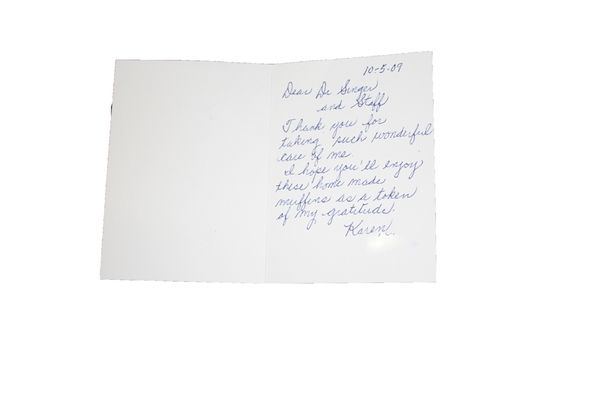 10-5-09
Dear Dr Singer
and Staff
Thank you for
taking such wonderful
care of me.
I hope you'll enjoy
these home made
muffins as a token
of my gratitude.
Karen